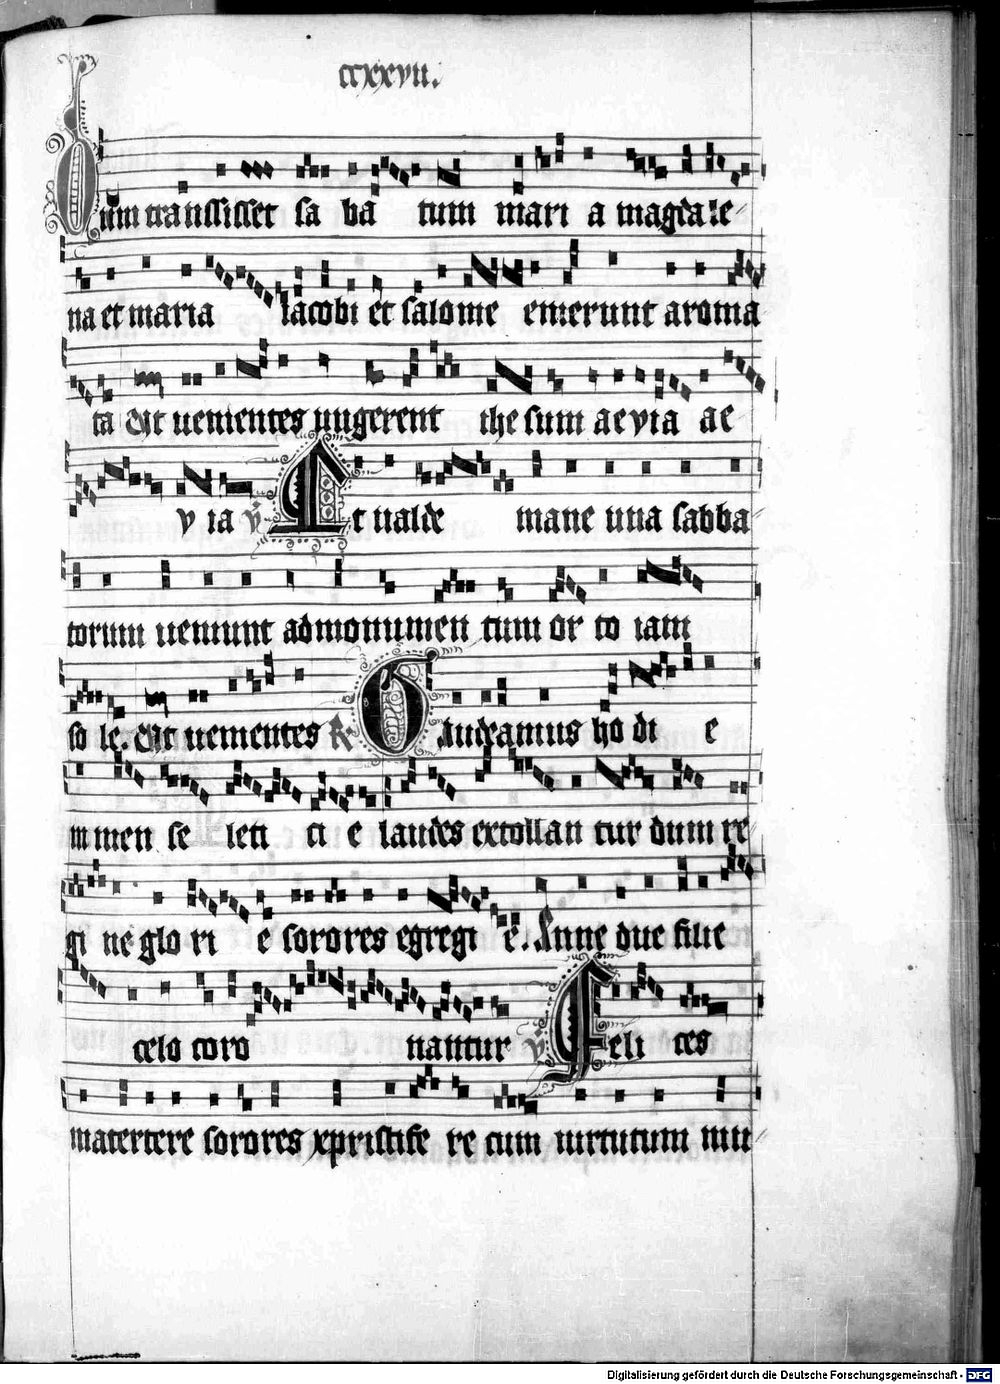 ccxxvii.
Dum transisset sa ba tum mari a magdale
na et maria iacobi et salome emerunt aroma
ta Ut uenientes ungerent ihe sum aeuia ae
v ia v Et ualde mane una sabba
torum ueniunt ad monumen tum or to iam
so le. Ut uenientes R Gaudeamus ho di e
in men se leti ci e laudes extollan tur dum re
gi ne glo ri e sorores egregi e. Anne due filie
celo coro nantur v Feli ces
matertere sorores xpristife re cum uirtutum mu
Digitalisierung gefördert durch die Deutsche Forschungsgemeinschaft - DFG